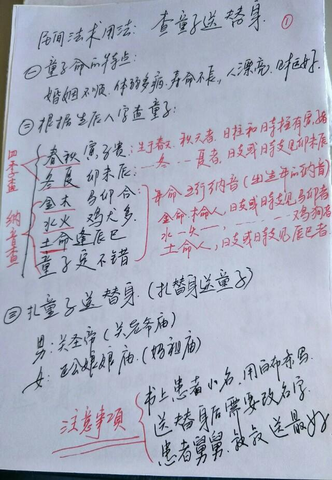 民间法术用法: 查童子送替身. ①
㊀童子命的特点:
婚姻不顺. 体弱多病. 寿命不长, 人漂亮.
㊁根据生辰八字查童子:
四季查
纳音查
春秋寅子贵: 生于春天. 秋天者. 日柱和时柱有寅.
冬夏卯未辰: 冬. 夏者. 日支或时支见卯未辰
金木马卯合
水火鸡犬多.
土命逢辰巳
童子定不错
年命五行纳音(出生年的纳音)
金命.木命人, 日支或时支见马卯者
水一火 鸡狗者
土命人, 日支或时支见辰巳者
㊂扎童子送替身. (扎替身送童子)
男: 关圣帝 (关老爷庙)
女: 娘娘庙. (妈祖庙)
注意事项
书上患者小名, 用白布亦可
送替身后需要改名字.
患者舅舅. 叔叔送最好